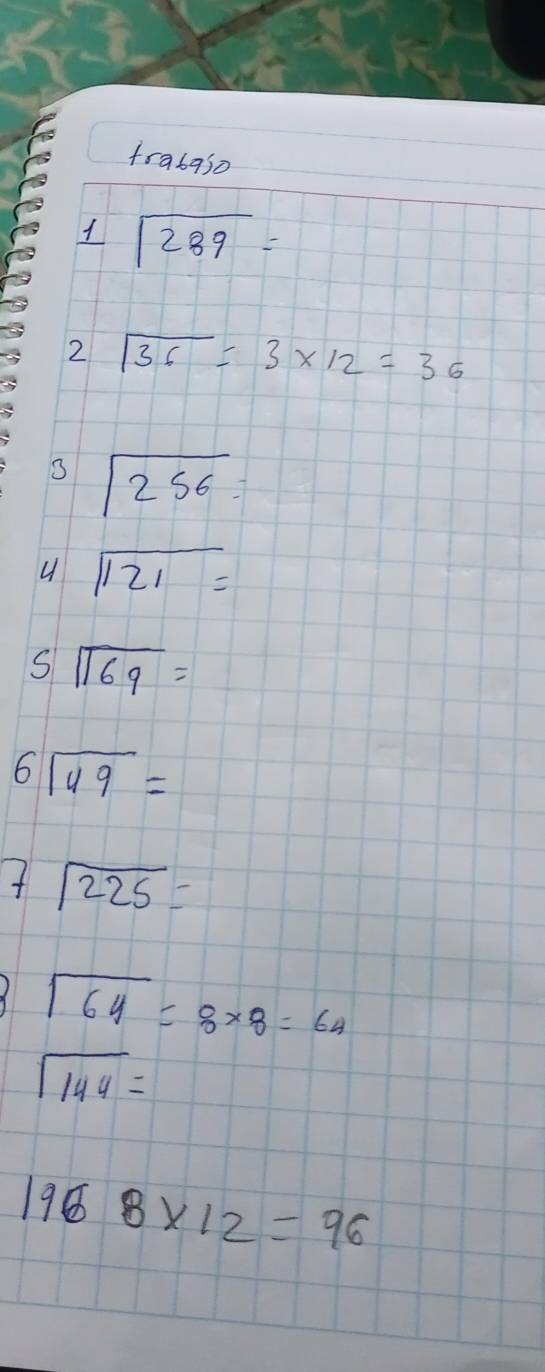 trabajo
1 √289 =
2 √36 = 3 × 12 = 36
3 √256 =
4 √121 =
5 √169 =
6 √49 =
7 √225 =
8 √64 = 8 × 8 = 64
√144 =
196 8 × 12 = 96